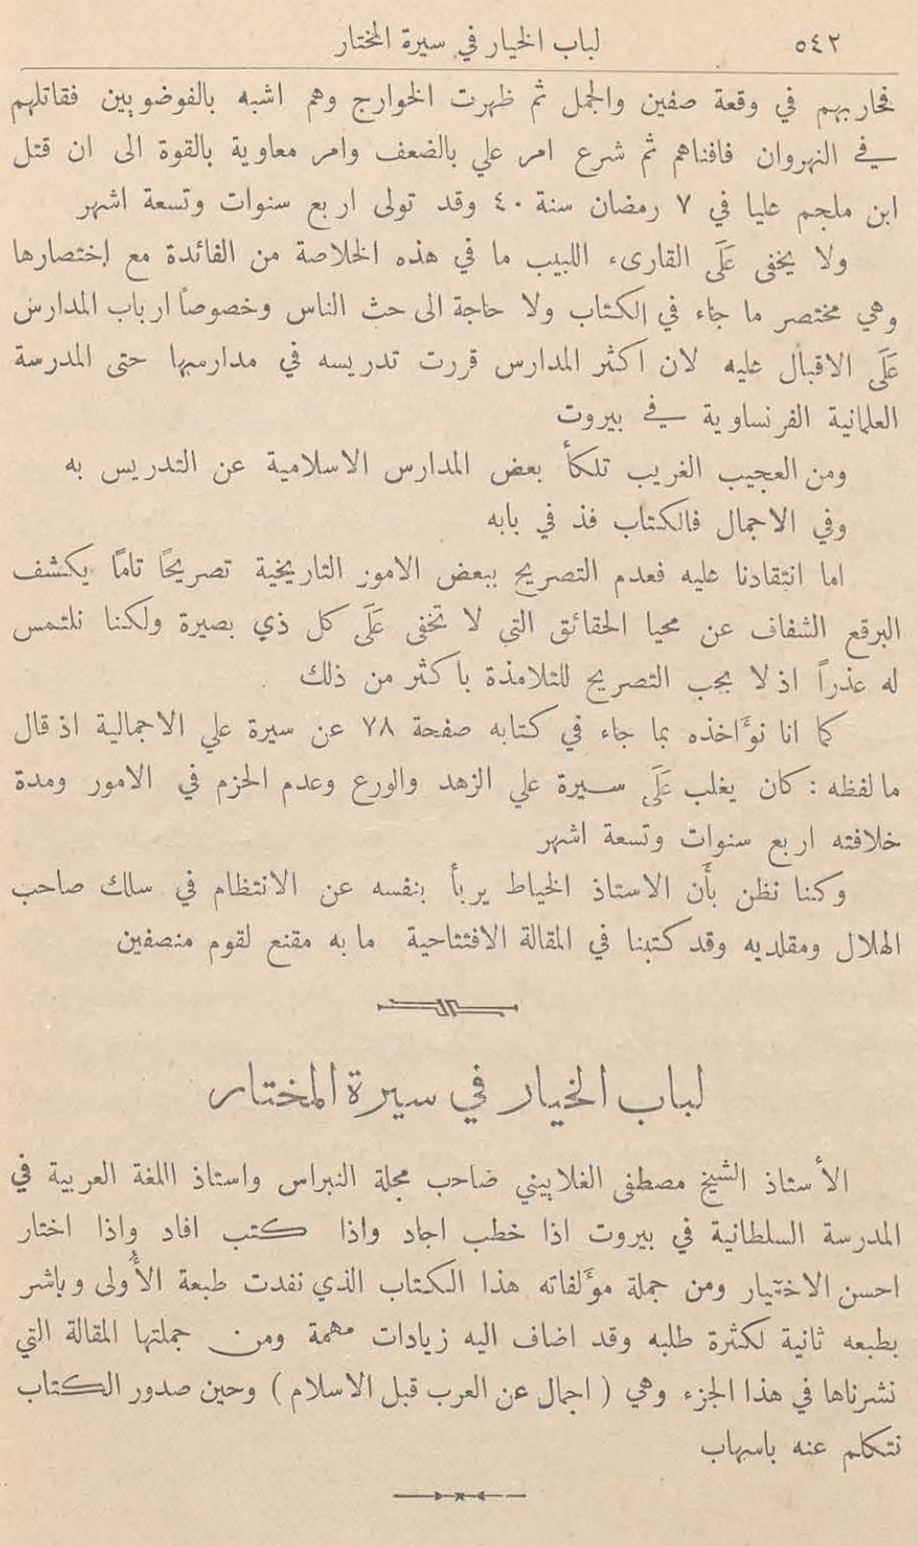 ٥٤٢ لباب الخيار في سيرة المختار
فحاربهم في وقعة صفين والجمل ثم ظهرت الخوارج وهم اشبه بالفوضويين فقاتلهم
في النهروان فافناهم ثم شرع امر علي بالضعف وامر معاوية بالقوة الى ان قتل
ابن ملجم عليا في ٧ رمضان سنة ٤٠ وقد تولى اربع سنوات وتسعة اشهر
ولا يخفى عَلَى القارىء اللبيب ما في هذه الخلاصة من الفائدة مع إختصارها
وهي مختصر ما جاء في الكتاب ولا حاجة الى حث الناس وخصوصاً ارباب المدارس
عَلَى الاقبال عليه لان اكثر المدارس قررت تدريسه في مدارسها حتى المدرسة
العلمانية الفرنساوية في بيروت
ومن العجيب الغريب تلكأ بعض المدارس الاسلامية عن التدريس به
وفي الاجمال فالكتاب فذ في بابه
اما انتقادنا عليه فعدم التصريح ببعض الامور التاريخية تصريحًا تامًا يكشف
البرقع الشفاف عن محيا الحقائق التي لا تخفى عَلَى كل ذي بصيرة ولكنا نلتمس
له عذراً اذ لا يجب التصريح للتلامذة باكثر من ذلك
كما انا نؤَاخذه بما جاء في كتابه صفحة ٧٨ عن سيرة علي الاجمالية اذ قال
مالفظه : كان يغلب عَلَى سيرة علي الزهد والورع وعدم الحزم في الامور ومدة
خلافته اربع سنوات وتسعة اشهر
وكنا نظن بأَن الاستاذ الخياط يربأ بنفسه عن الانتظام في سلك صاحب
الهلال ومقلديه وقد كتبنا في المقالة الافتتاحية ما به مقنع لقوم منصفين
لباب الخيار في سيرة المختار
الأستاذ الشيخ مصطفى الغلاييني صاحب مجلة النبراس واستاذ اللغة العربية في
المدرسة السلطانية في بيروت اذا خطب اجاد واذا كتب افاد واذا اختار
احسن الاختيار ومن جملة مؤَلفاته هذا الكتاب الذي نفدت طبعة الأُولى وباشر
بطبعه ثانية لكثرة طلبه وقد اضاف اليه زيادات مهمة ومن جملتها المقالة التي
نشرناها في هذا الجزء وهي ( اجمال عن العرب قبل الاسلام ) وحين صدور الكتاب
نتكلم عنه باسهاب